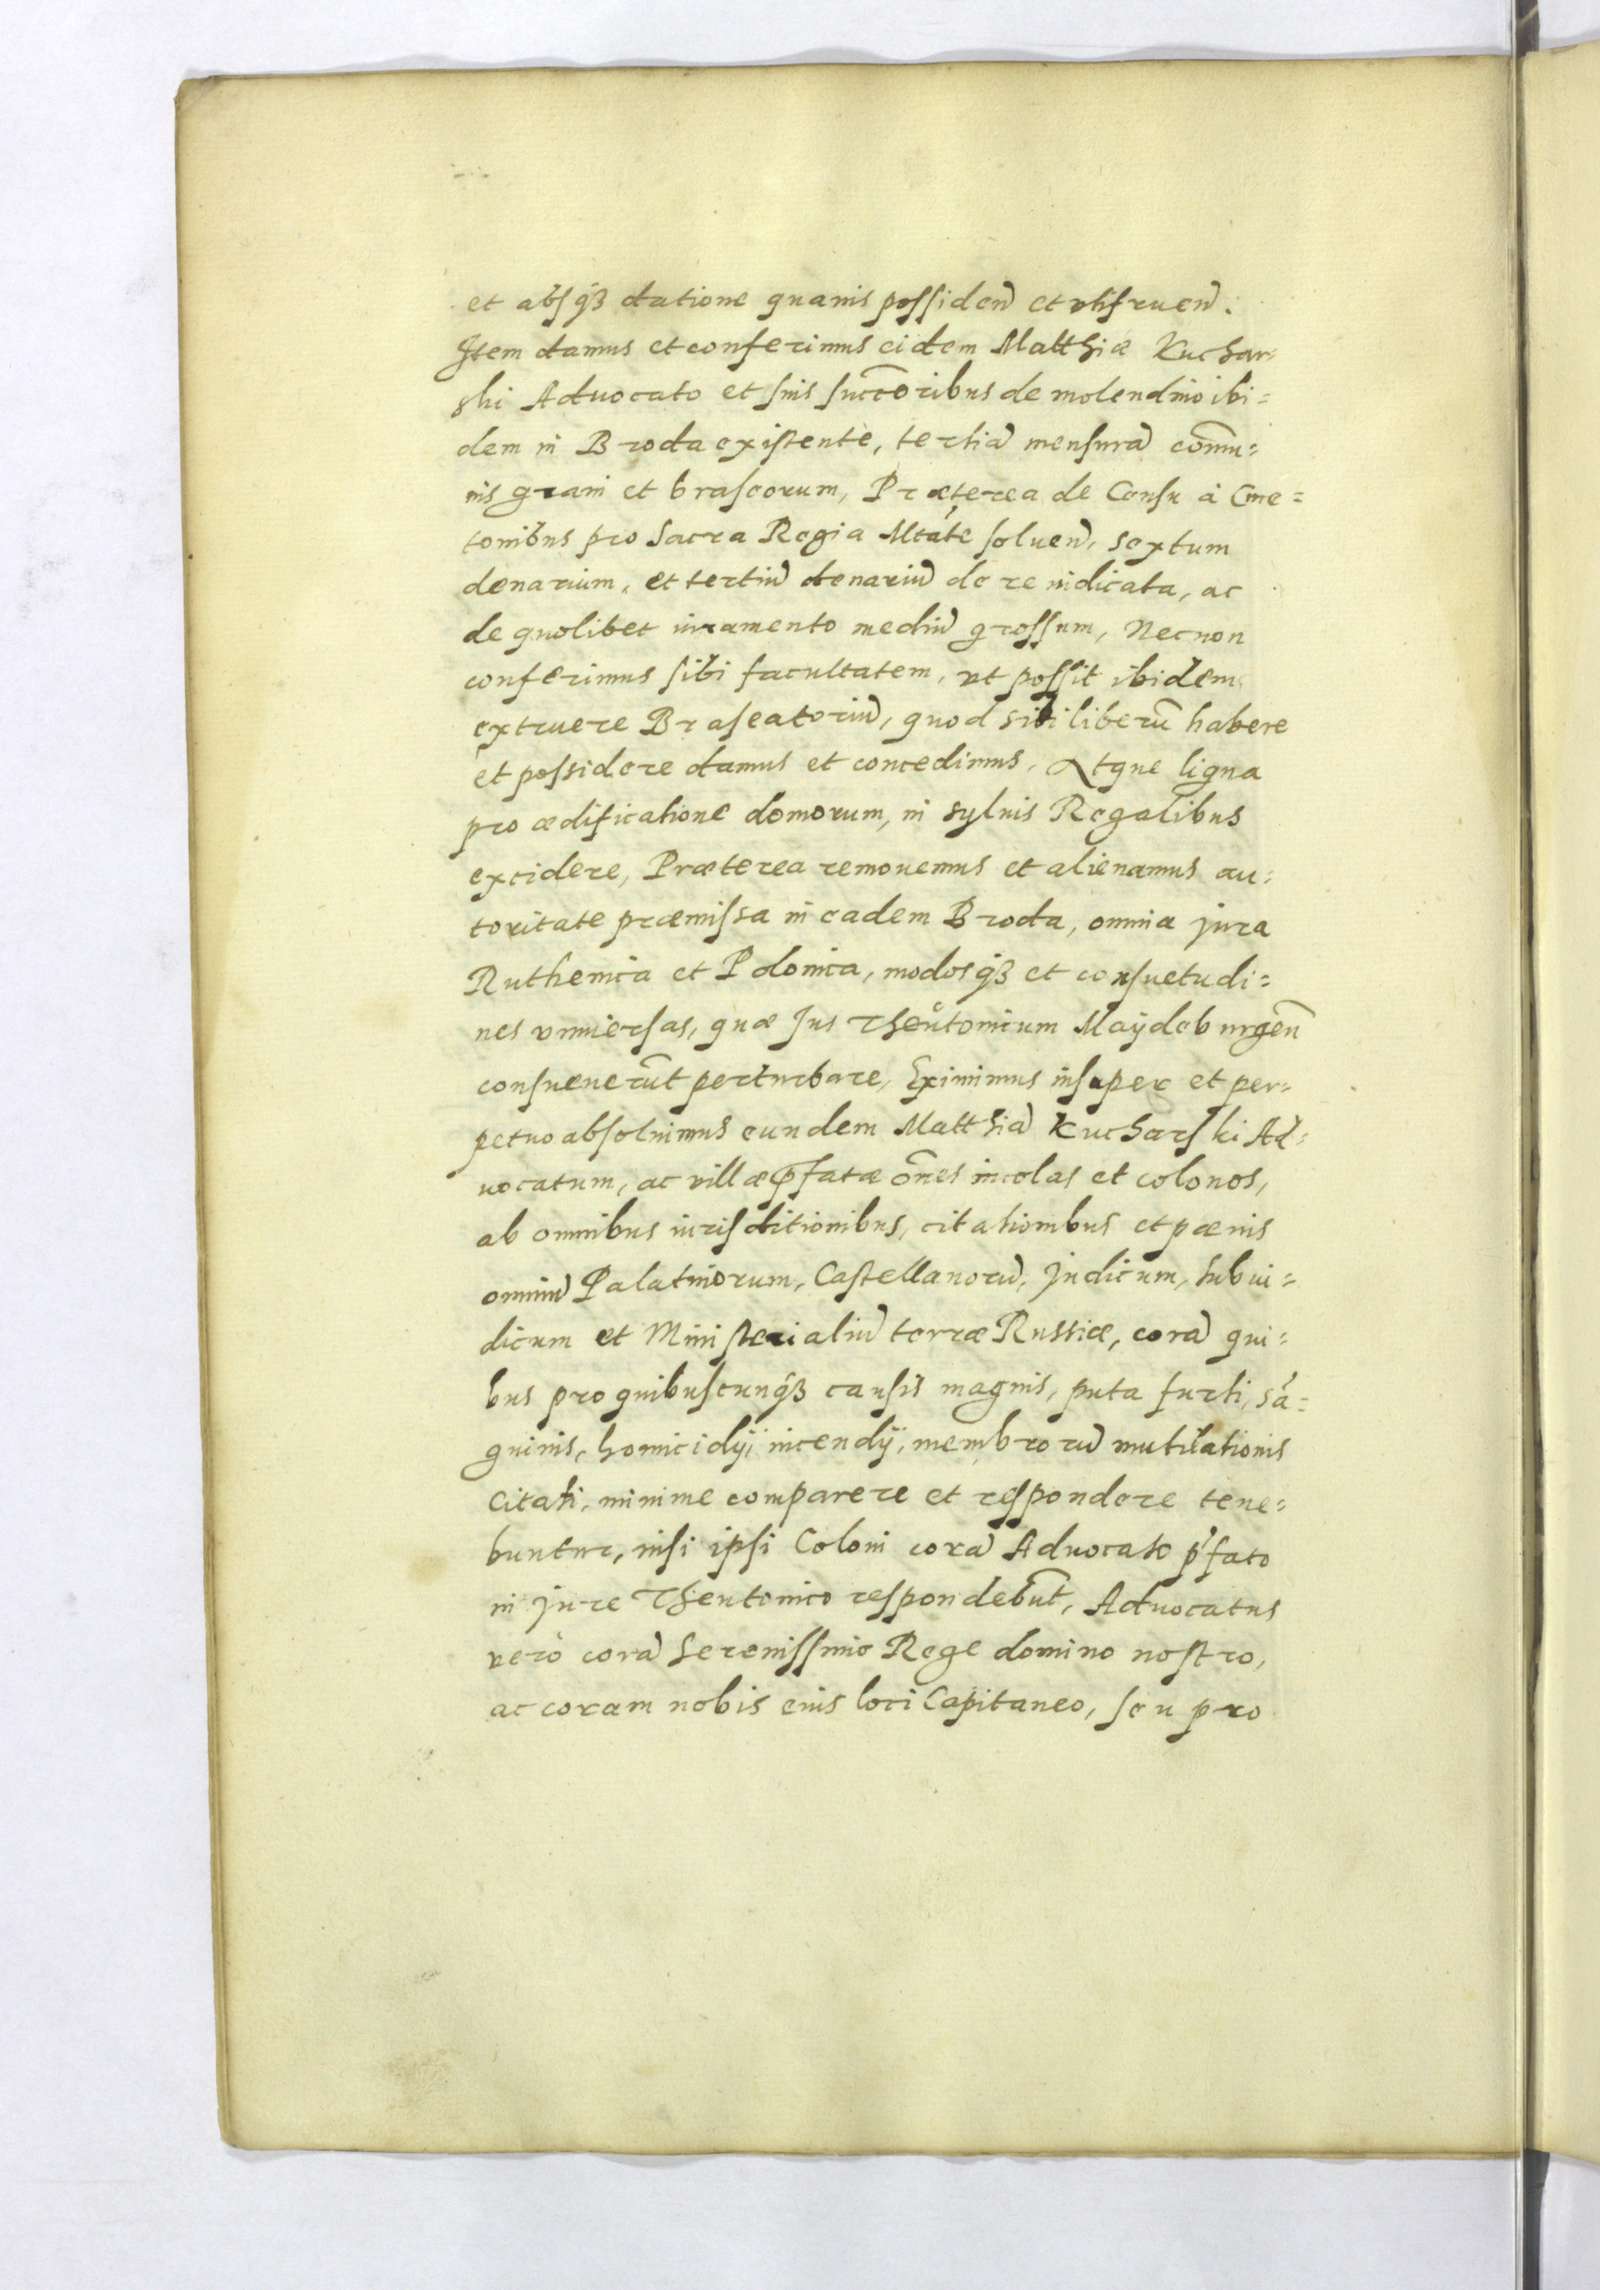 et absq₃ datione quauis possidend̄ et vtifruend̄.
Item damus et conferimus eidem Matthiæ Kuchar=
ski Aduocato et suis succ̄oribus de molendino ibi=
dem in Broda existente, tertiā mensurā com̄u=
nis grani et braseorum, Præterea de Censu à Cme=
tonibus pro Sacra Regia Mtáte soluend̄, sextum
denarium, et tertiū denariū de re iudicata, ac
de quolibet iuramento mediū grossum, Necnon
conferimus sibi facultatem, vt possit ibidem
extruere Braseatoriū, quod sibi liberū habere
et possidere damus et concedimus, Atque ligna
pro ædificatione domorum, in syluis Regalibus
excidere, Præterea remouemus et alienamus au=
toritate præmissa in eadem Broda, omnia jura
Ruthenica et Polonica, modosq₃ et consuetudi=
nes vniuersas, quæ Jus Theutonicum Maÿdeburgen̄
consueuerūt perturbare, Eximimus insuper et per=
petuo absoluimus eundem Matthiā Kucharski Ad=
uocatum, ac villæ p̄fatæ om̄es incolas et colonos,
ab omnibus iurisditionibus, citationibus et pœnis
omniū Palatinorum, Castellanorū, Judicum, Subiu=
dicum et Ministerialiū terræ Russiæ, corā qui=
bus pro quibuscunq₃ causis magnis, puta furti, sā=
guinis, homicidÿ, incendÿ, membrorū mutilationis
Citati, minime comparere et respondere tene=
buntur, nisi ipsi Coloni corā Aduocato p̄fato
in jure Theutonico respondebūt, Aduocatus
verò corā Serenissimo Rege domino nostro,
ac coram nobis eius loci Capitaneo, seu pro